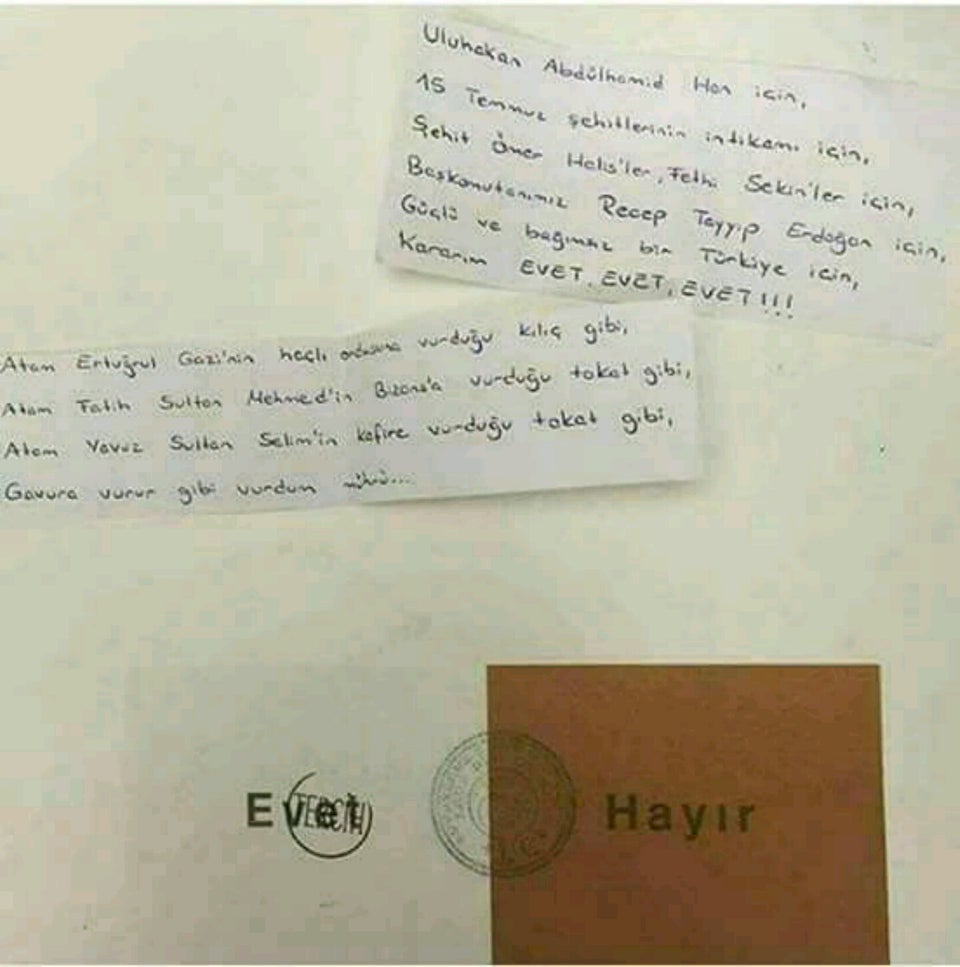 Uluhakan Abdülhamid Han için,
15 Temmuz şehitlerinin intikamı için,
Şehit Ömer Halis'ler, Fethi Sekin'ler için,
Başkomutanımız Recep Tayyip Erdoğan için,
Güçlü ve bağımsız bir Türkiye için,
Kararım EVET, EVET, EVET!!!
Atam Ertuğrul Gazi'nin haçlı ordusuna vurduğu kılıç gibi,
Atam Fatih Sultan Mehmed'in Bizans'a vurduğu tokat gibi,
Atam Yavuz Sultan Selim'in kafire vurduğu tokat gibi,
Gavura vurur gibi vurdum mührü...
Evet
TERCİH
Hayır